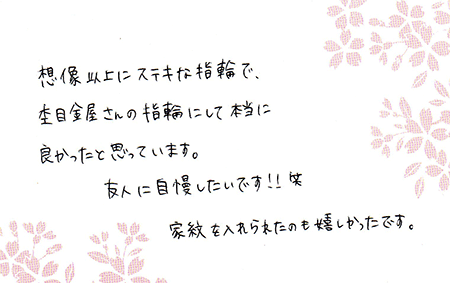 想像以上にステキな指輪で、
杢目金屋さんの指輪にして本当に
良かったと思っています。
友人に自慢したいです!! 笑
家紋を入れられたのも嬉しかったです。